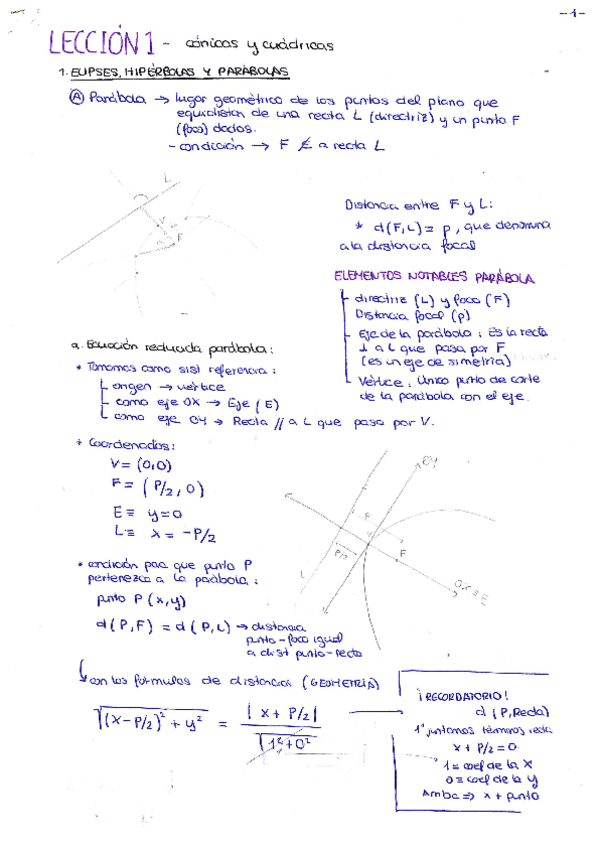 - 1 -
LECCIÓN 1 - cónicas y cuádricas
1. ELIPSES, HIPÉRBOLAS Y PARÁBOLAS
(A) Parábola → lugar geométrico de los puntos del plano que
equidistan de una recta L (directriz) y un punto F
(foco) dados.
- condición → F ∉ a recta L
L
V
F
Distancia entre F y L:
* d(F,L) = p, que denomina
a la distancia focal
ELEMENTOS NOTABLES PARÁBOLA
directriz (L) y foco (F)
Distancia focal (p)
Eje de la parábola: Es la recta
⊥ a L que pasa por F
(es un eje de simetría)
Vértice: Único punto de corte
de la parábola con el eje.
a. Ecuación reducida parábola:
* Tomamos como sist referencia:
origen → vértice
como eje OX → Eje (E)
como eje OY → Recta // a L que pasa por V.
* Coordenadas:
V = (0,0)
F = (P/2, 0)
E ≡ y = 0
L ≡ x = -P/2
OY
P
P/2
F
L
OX ≡ E
* condición para que punto P
pertenezca a la parábola:
punto P (x,y)
d(P,F) = d(P,L) → distancia
punto-foco igual
a dist punto-recta
con las fórmulas de distancias (GEOMETRÍA)
√((x-P/2)² + y²) = |x + P/2| / √(1² + 0²)
¡RECORDATORIO!
d (P,Recta)
1º juntamos términos recta
x + P/2 = 0
1 = coef de la x
0 = coef de la y
Arriba ⇒ x + punto